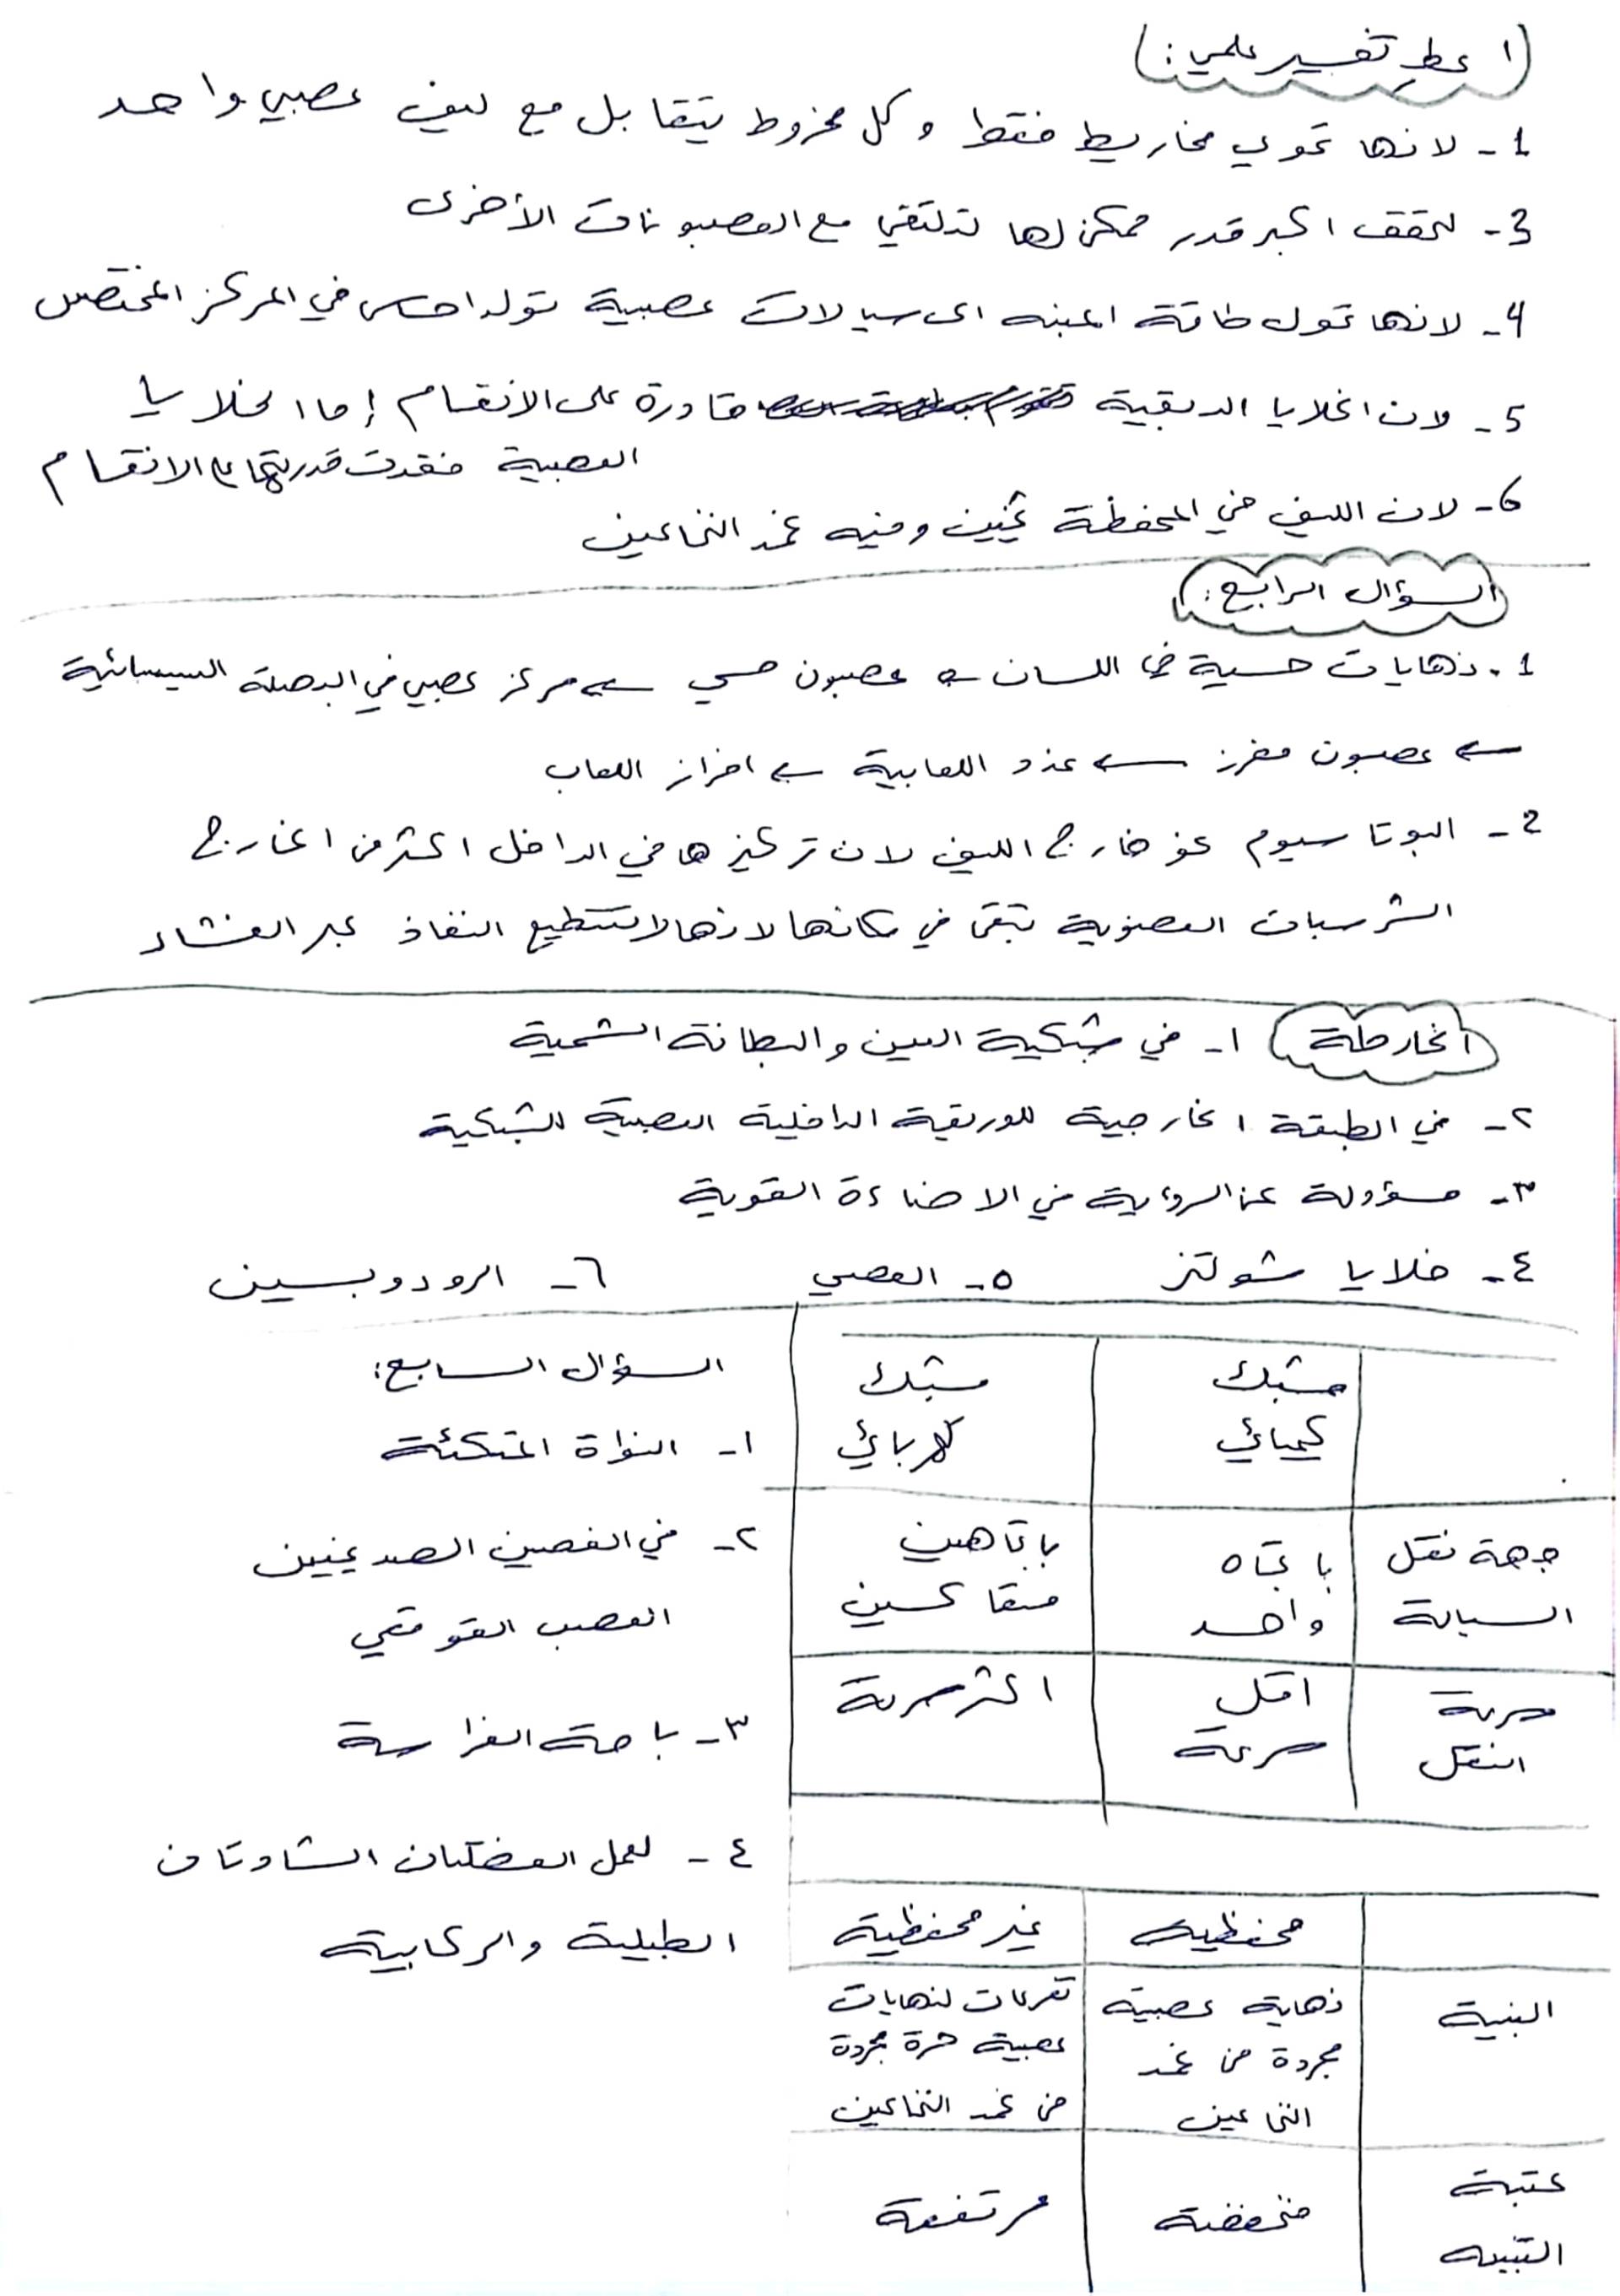 اعط تفسير علمي:
1- لانها تحوي مخاريط فقط وكل مخروط يتقابل مع ليف عصبي واحد
3- لتحقق اكبر قدر ممكن لها لتلتقي مع العصبونات الأخرى
4- لانها تحول طاقة المنبه الى سيالات عصبية تولد احساس في المركز المختص
5- لان الخلايا الدبقية قادرة على الانقسام إما الخلايا
العصبية فقدت قدرتها ع الانقسام
6- لان الليف في المحفظة ثخين وفيه غمد النخاعين
السؤال الرابع:
1- نهايات حسية في اللسان ← عصبون حسي ← مركز عصبي في البصلة السيسائية
← عصبون مفرز ← غدد اللعابية ← افراز اللعاب
2- البوتاسيوم نحو خارج الليف لان تركيزها في الداخل اكثر من الخارج
الشرسبات العضوية تبقى في مكانها لانها لا تستطيع النفاذ عبر الغشاء
الخارطة
١- في شبكية العين والبطانة الشمية
٢- في الطبقة الخارجية للوريقة الداخلية العصبية للشبكية
٣- مسؤولة عن الرؤية في الاضاءة القوية
٤- خلايا شولتز ٥- العصبي ٦- الرودوبسين
مشبك كيميائي مشبك كهربائي
جهة نقل السيالة باتجاه واحد باتجاهين متعاكسين
سرعة النقل اقل سرعة اكثر سرعة
محفظية غير محفظية
البنية نهاية عصبية مجردة من غمد النخاعين تفرعات لنهايات عصبية حرة مجردة من غمد النخاعين
عتبة التنبيه منخفضة مرتفعة
السؤال السابع:
١- النواة المتكئة
٢- في الفصين الصدغيين
العصب القوقعي
٣- باحة الفراسة
٤- لعمل العضلتان الشادتان
الطبلية والركابية